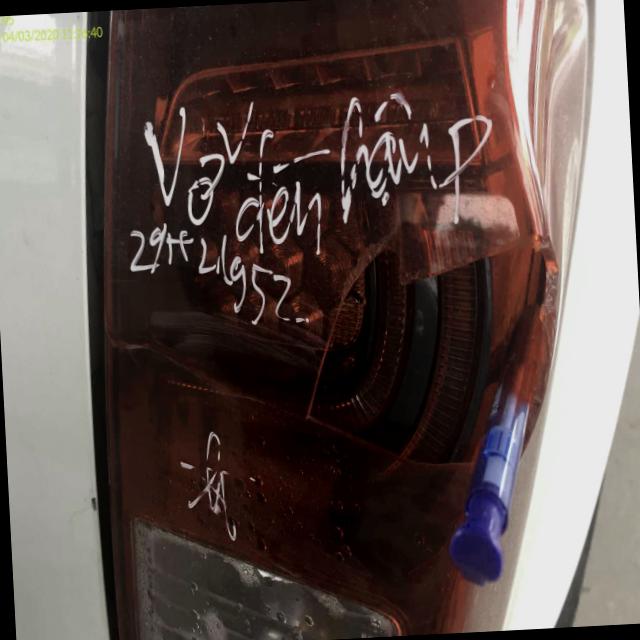 04/03/2020 11:26:40
Vỡ đèn hậu P
29H 21952